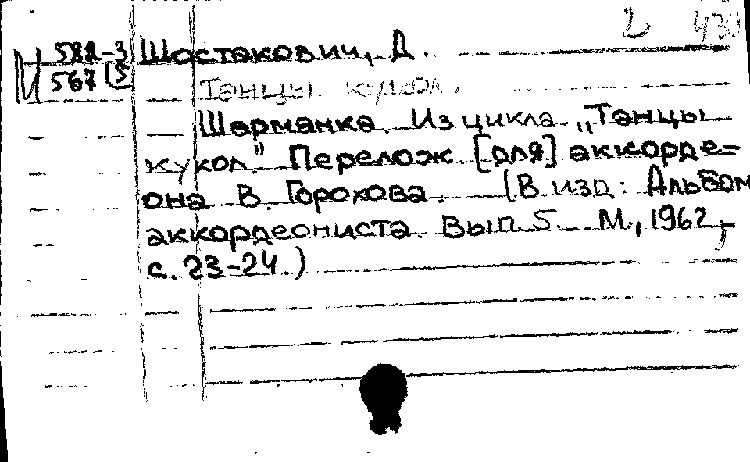 2 43
И 582-3 Шостакович, Д.
567 (5
Танцы кукол.
Шарманка. Из цикла „Танцы
кукол". Перелож. [для] аккорде-
она В. Горохова. (В изд.: Альбом
аккордеониста. Вып. 5. М., 1962,
с. 23-24.)